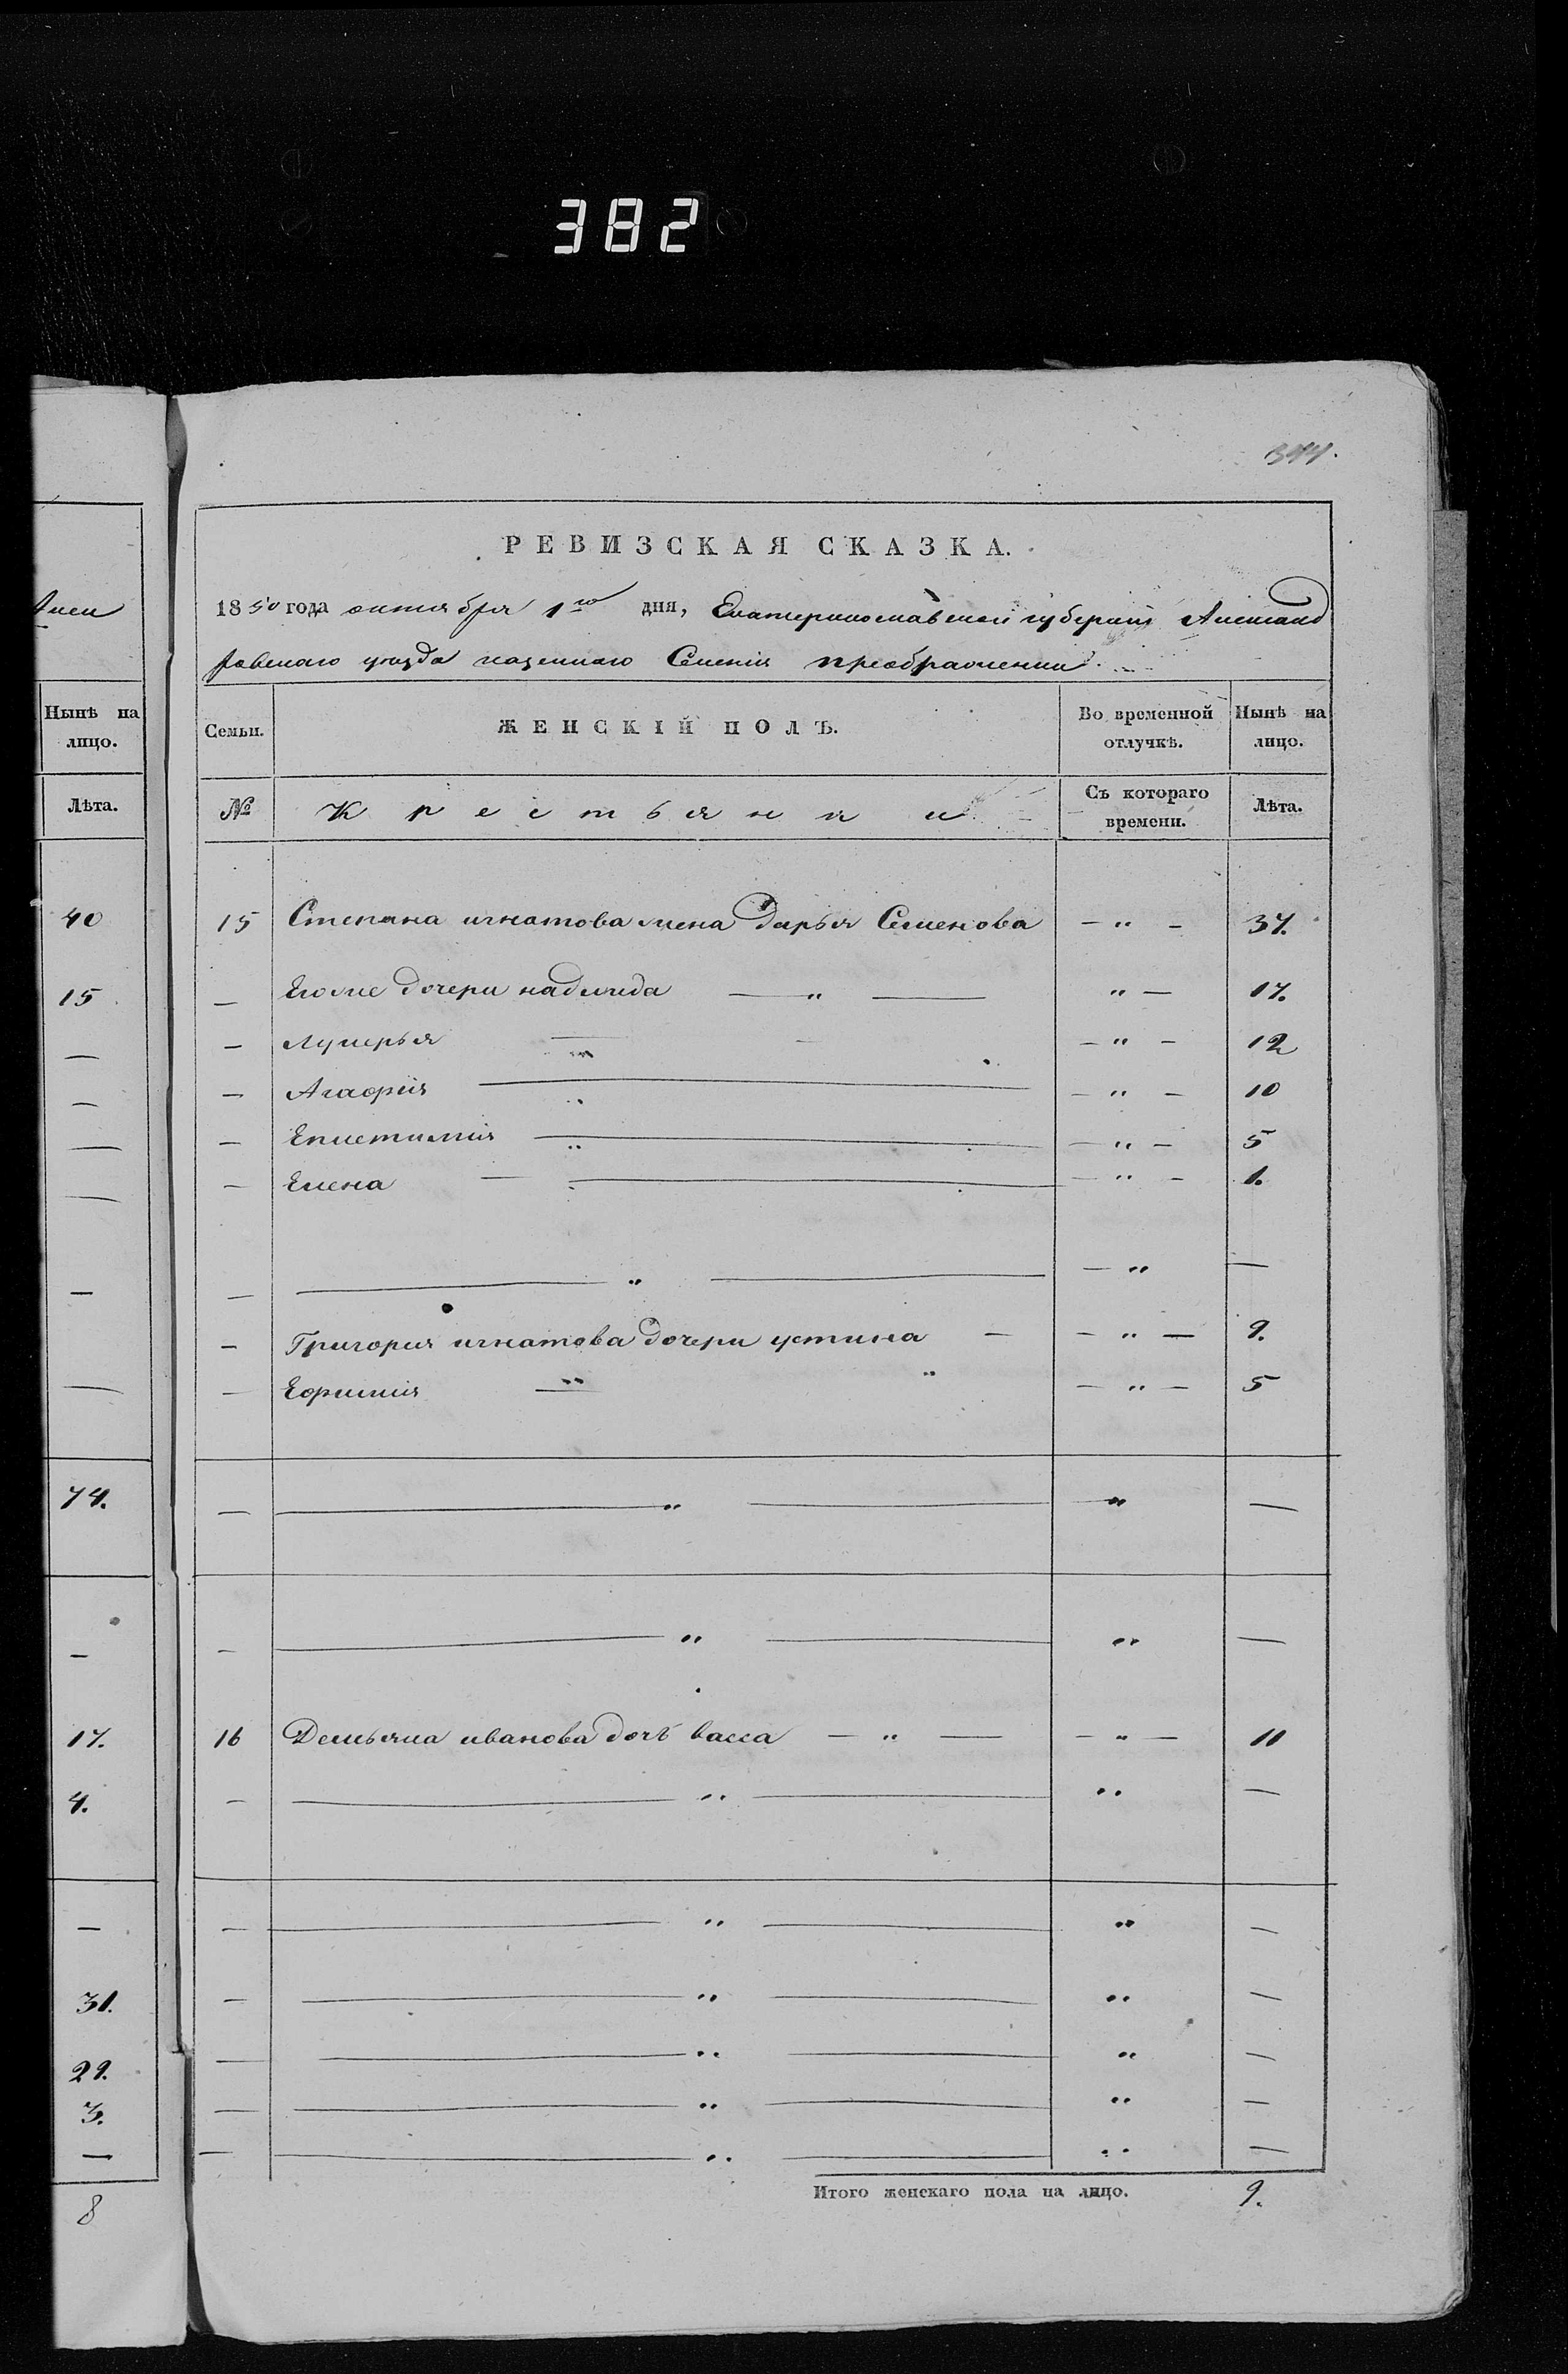 382
344.
РЕВИЗСКАЯ СКАЗКА.
1850 года октября 1го дня, Екатеринославской губернии Александ
ровскаго уезда казеннаго Селенія преображенки
Нынѣ на лицо.
Лѣта.
40
15
—
—
—
—
—
—
74.
—
17.
4.
—
31.
29.
3.
—
8
Семьи. ЖЕНСКІЙ ПОЛЪ. Во временной отлучкѣ. Нынѣ на лицо.
№ Крестьянки Съ котораго времени. Лѣта.
15 Степана игнатова жена Дарья Семенова — " — 37.
— Егоже дочери надежда — " — " — 17.
— Лукерья — " — " — 12
— Агафія " — — " — 10
— Епистимія " — — " — 5
— Елена — " — — " — 1.
— — " — — " —
— Григория игнатова дочери устина — — " — 9.
— Ефимия " " — " — 5
— — " — — " —
— — " — " —
16 Демьяна иванова дочь васса — " — — " — 11
— — " — " —
— — " — " —
— — " — " —
— — " — " —
— — " — " —
— — " — " —
Итого женскаго пола на лицо. 9.